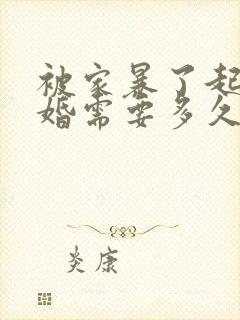 被家暴了起
婚需要多久
炎康